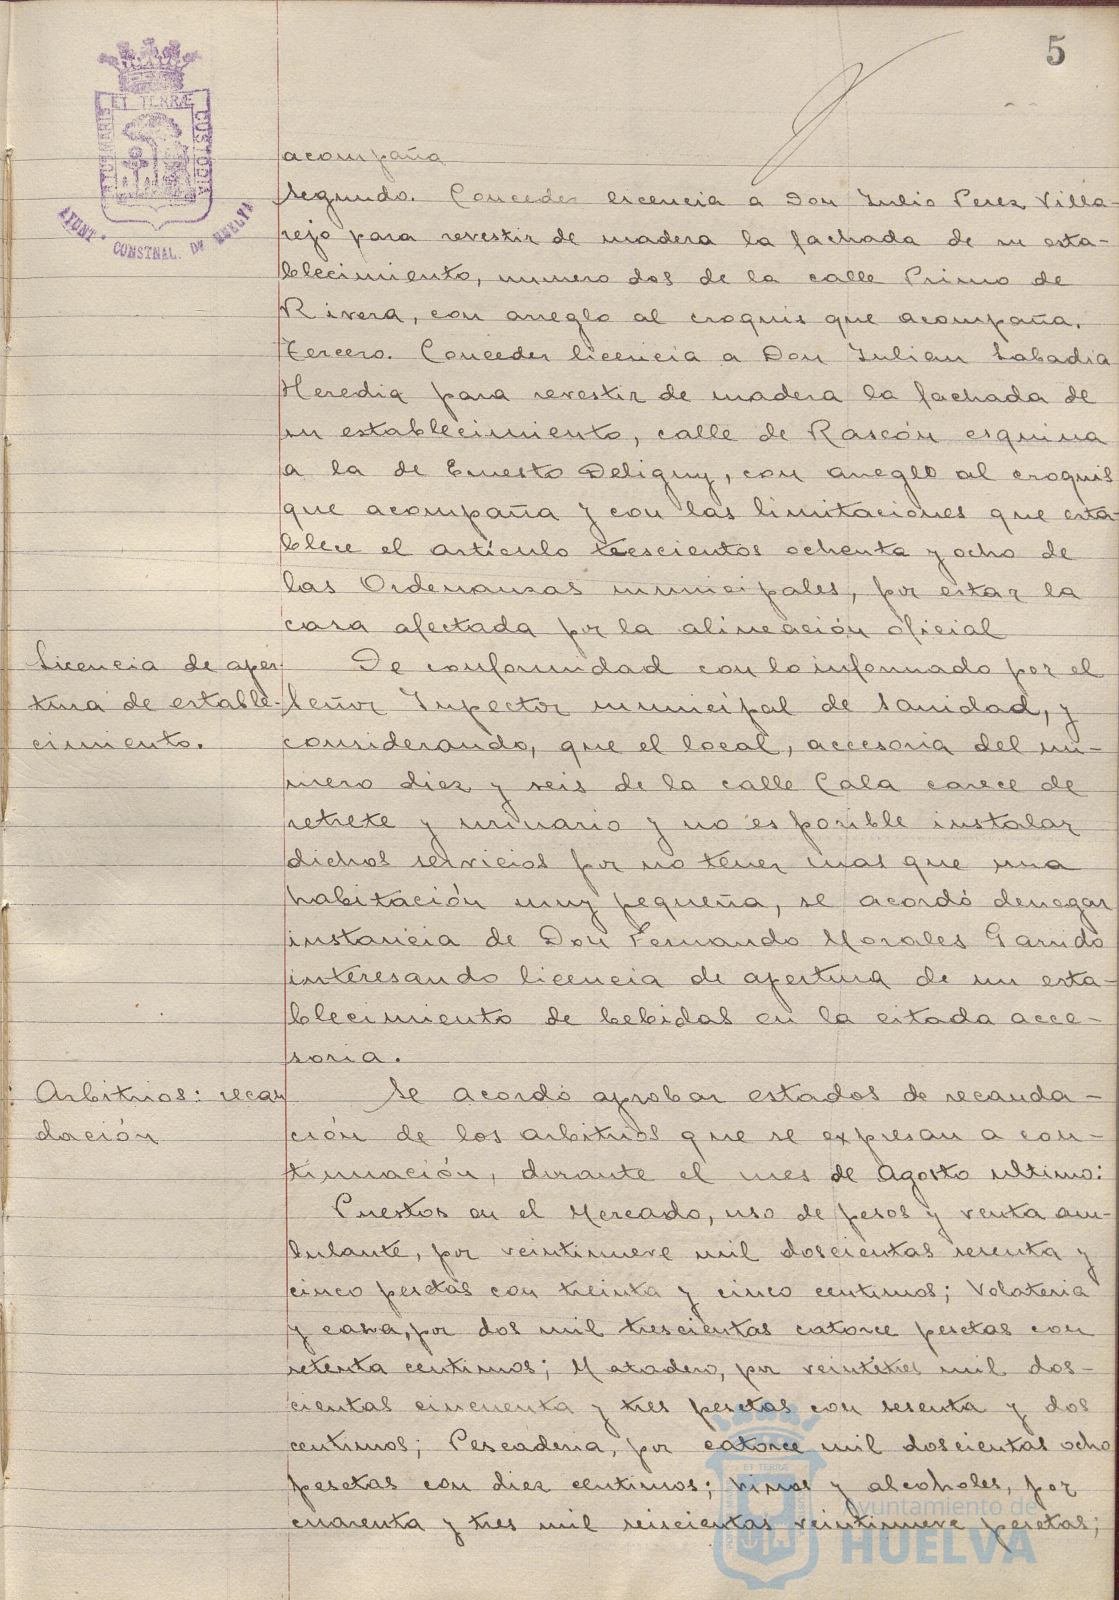 5
ET TERRÆ
PORTUS MARIS
CUSTODIA
AYUNT. CONSTNAL. DE HUELVA
acompaña
Segundo. Conceder licencia a Don Julio Perez Villa-
rejo para revestir de madera la fachada de su esta-
blecimiento, numero dos de la calle Primo de
Rivera, con arreglo al croquis que acompaña.
Tercero. Conceder licencia a Don Julian Labadia
Heredia para revestir de madera la fachada de
su establecimiento, calle de Rascón esquina
a la de Ernesto Deligny, con arreglo al croquis
que acompaña y con las limitaciones que esta-
blece el artículo trescientos ochenta y ocho de
las Ordenanzas municipales, por estar la
casa afectada por la alineación oficial
Licencia de aper-
tura de estable-
cimiento.
De conformidad con lo informado por el
Señor Inpector municipal de Sanidad, y
considerando, que el local, accesoria del nu-
mero diez y seis de la calle Cala carece de
retrete y urinario y no es posible instalar
dichos servicios por no tener mas que una
habitación muy pequeña, se acordó denegar
instancia de Don Fernando Morales Garrido
interesando licencia de apertura de un esta-
blecimiento de bebidas en la citada acce-
soria.
Arbitrios: recau
dación
Se acordó aprobar estados de recauda-
ción de los arbitrios que se expresan a con-
tinuación, durante el mes de Agosto ultimo:
Puestos en el Mercado, uso de pesos y venta am-
bulante, por veintinueve mil doscientas sesenta y
cinco pesetas con treinta y cinco centimos; Volateria
y caza, por dos mil trescientas catorce pesetas con
setenta centimos; Matadero, por veintitres mil dos-
cientas cincuenta y tres pesetas con sesenta y dos
centimos; Pescaderia, por catorce mil doscientas ocho
pesetas con diez centimos; Vinos y alcoholes, por
cuarenta y tres mil seiscientas veintinueve pesetas;
Ayuntamiento de
HUELVA